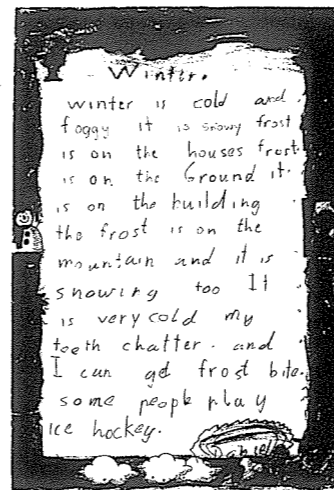 Winter.
winter is cold and
foggy it is snowy frost
is on the houses frost.
is on the Ground it.
is on the building
the frost is on the
mountain and it is
snowing too It
is very cold my
teeth chatter. and
I can get frost bite.
some people play
ice hockey.